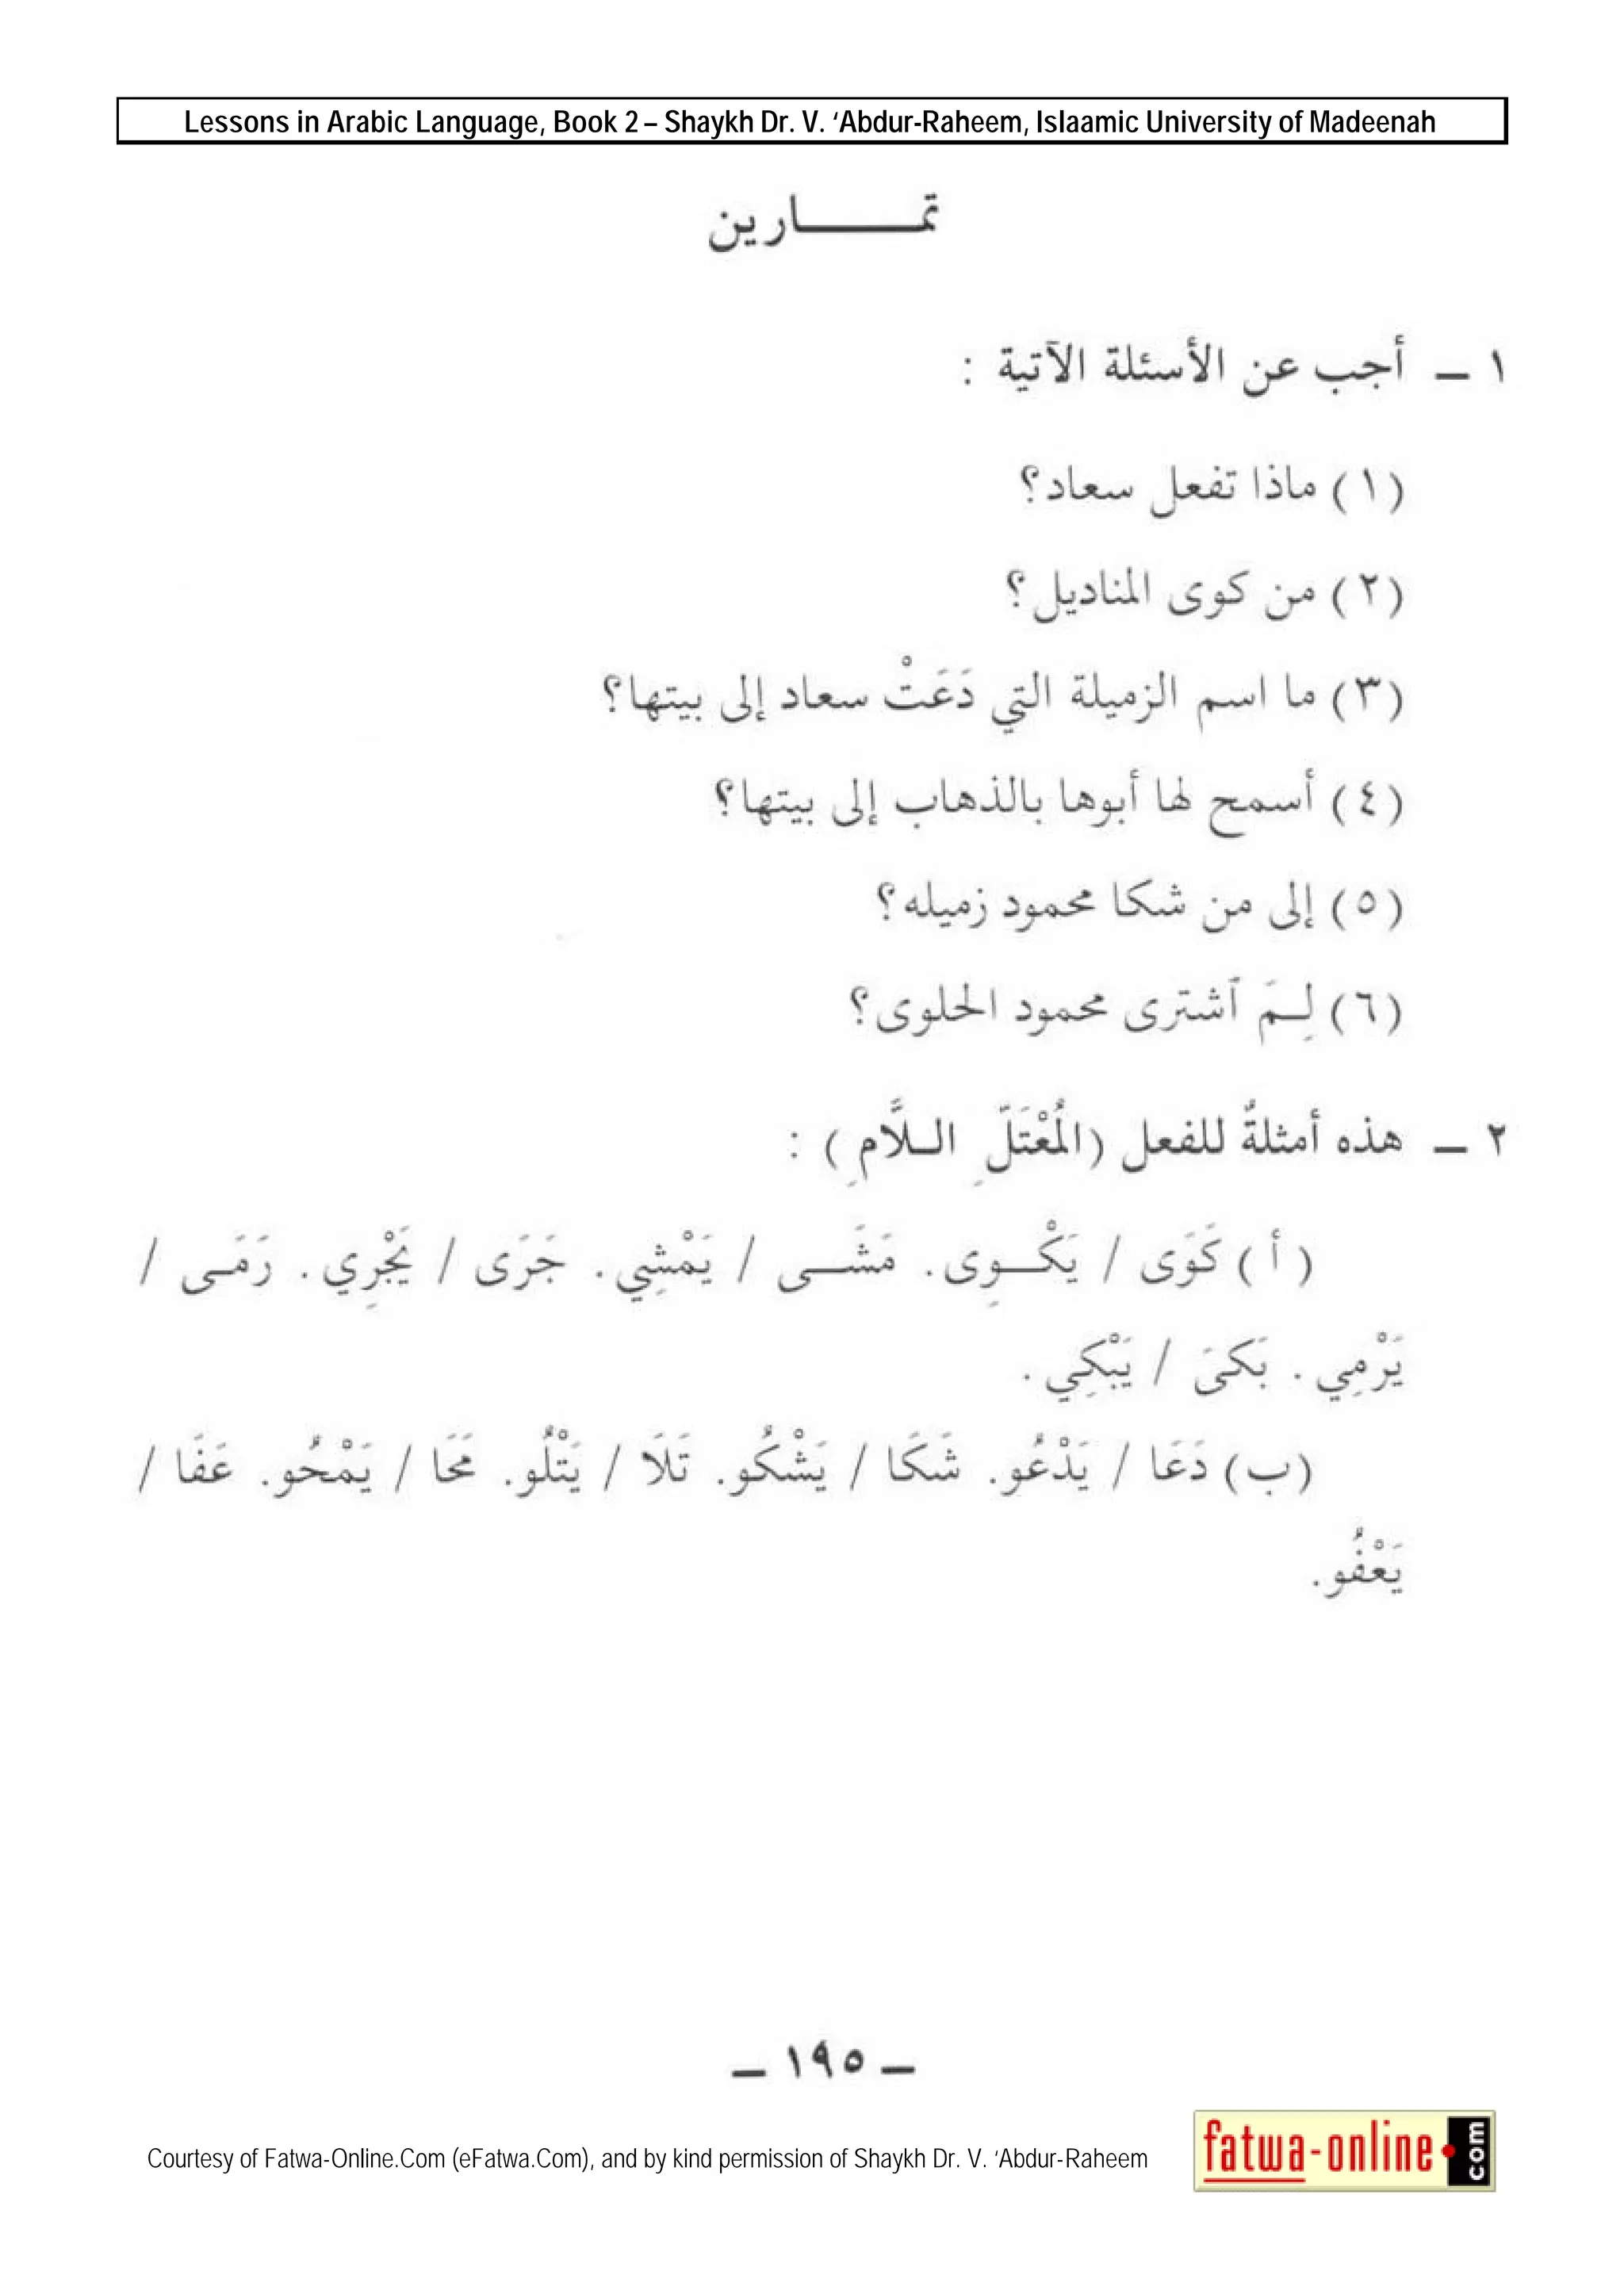 Lessons in Arabic Language, Book 2 – Shaykh Dr. V. ‘Abdur-Raheem, Islaamic University of Madeenah
تمـــــــارين
١ ـ أجب عن الأسئلة الآتية :
(١) ماذا تفعل سعاد؟
(٢) من كوى المناديل؟
(٣) ما اسم الزميلة التي دَعَتْ سعاد إلى بيتها؟
(٤) أسمح لها أبوها بالذهاب إلى بيتها؟
(٥) إلى من شكا محمود زميله؟
(٦) لِـمَ ٱشترى محمود الحلوى؟
٢ ـ هذه أمثلةٌ للفعل (المُعْتَلِّ الـلَّامِ) :
(أ) كَوَى / يَكْـــوِى. مَشَـــى / يَمْشِي. جَرَى / يَجْرِي. رَمَـى /
يَرْمِي. بَكَىَ / يَبْكِي.
(ب) دَعَا / يَدْعُو. شَكَا / يَشْكُو. تَلَا / يَتْلُو. مَحَا / يَمْحُو. عَفَا /
يَعْفُو.
ـ ١٩٥ ـ
Courtesy of Fatwa-Online.Com (eFatwa.Com), and by kind permission of Shaykh Dr. V. ‘Abdur-Raheem
fatwa-online.com